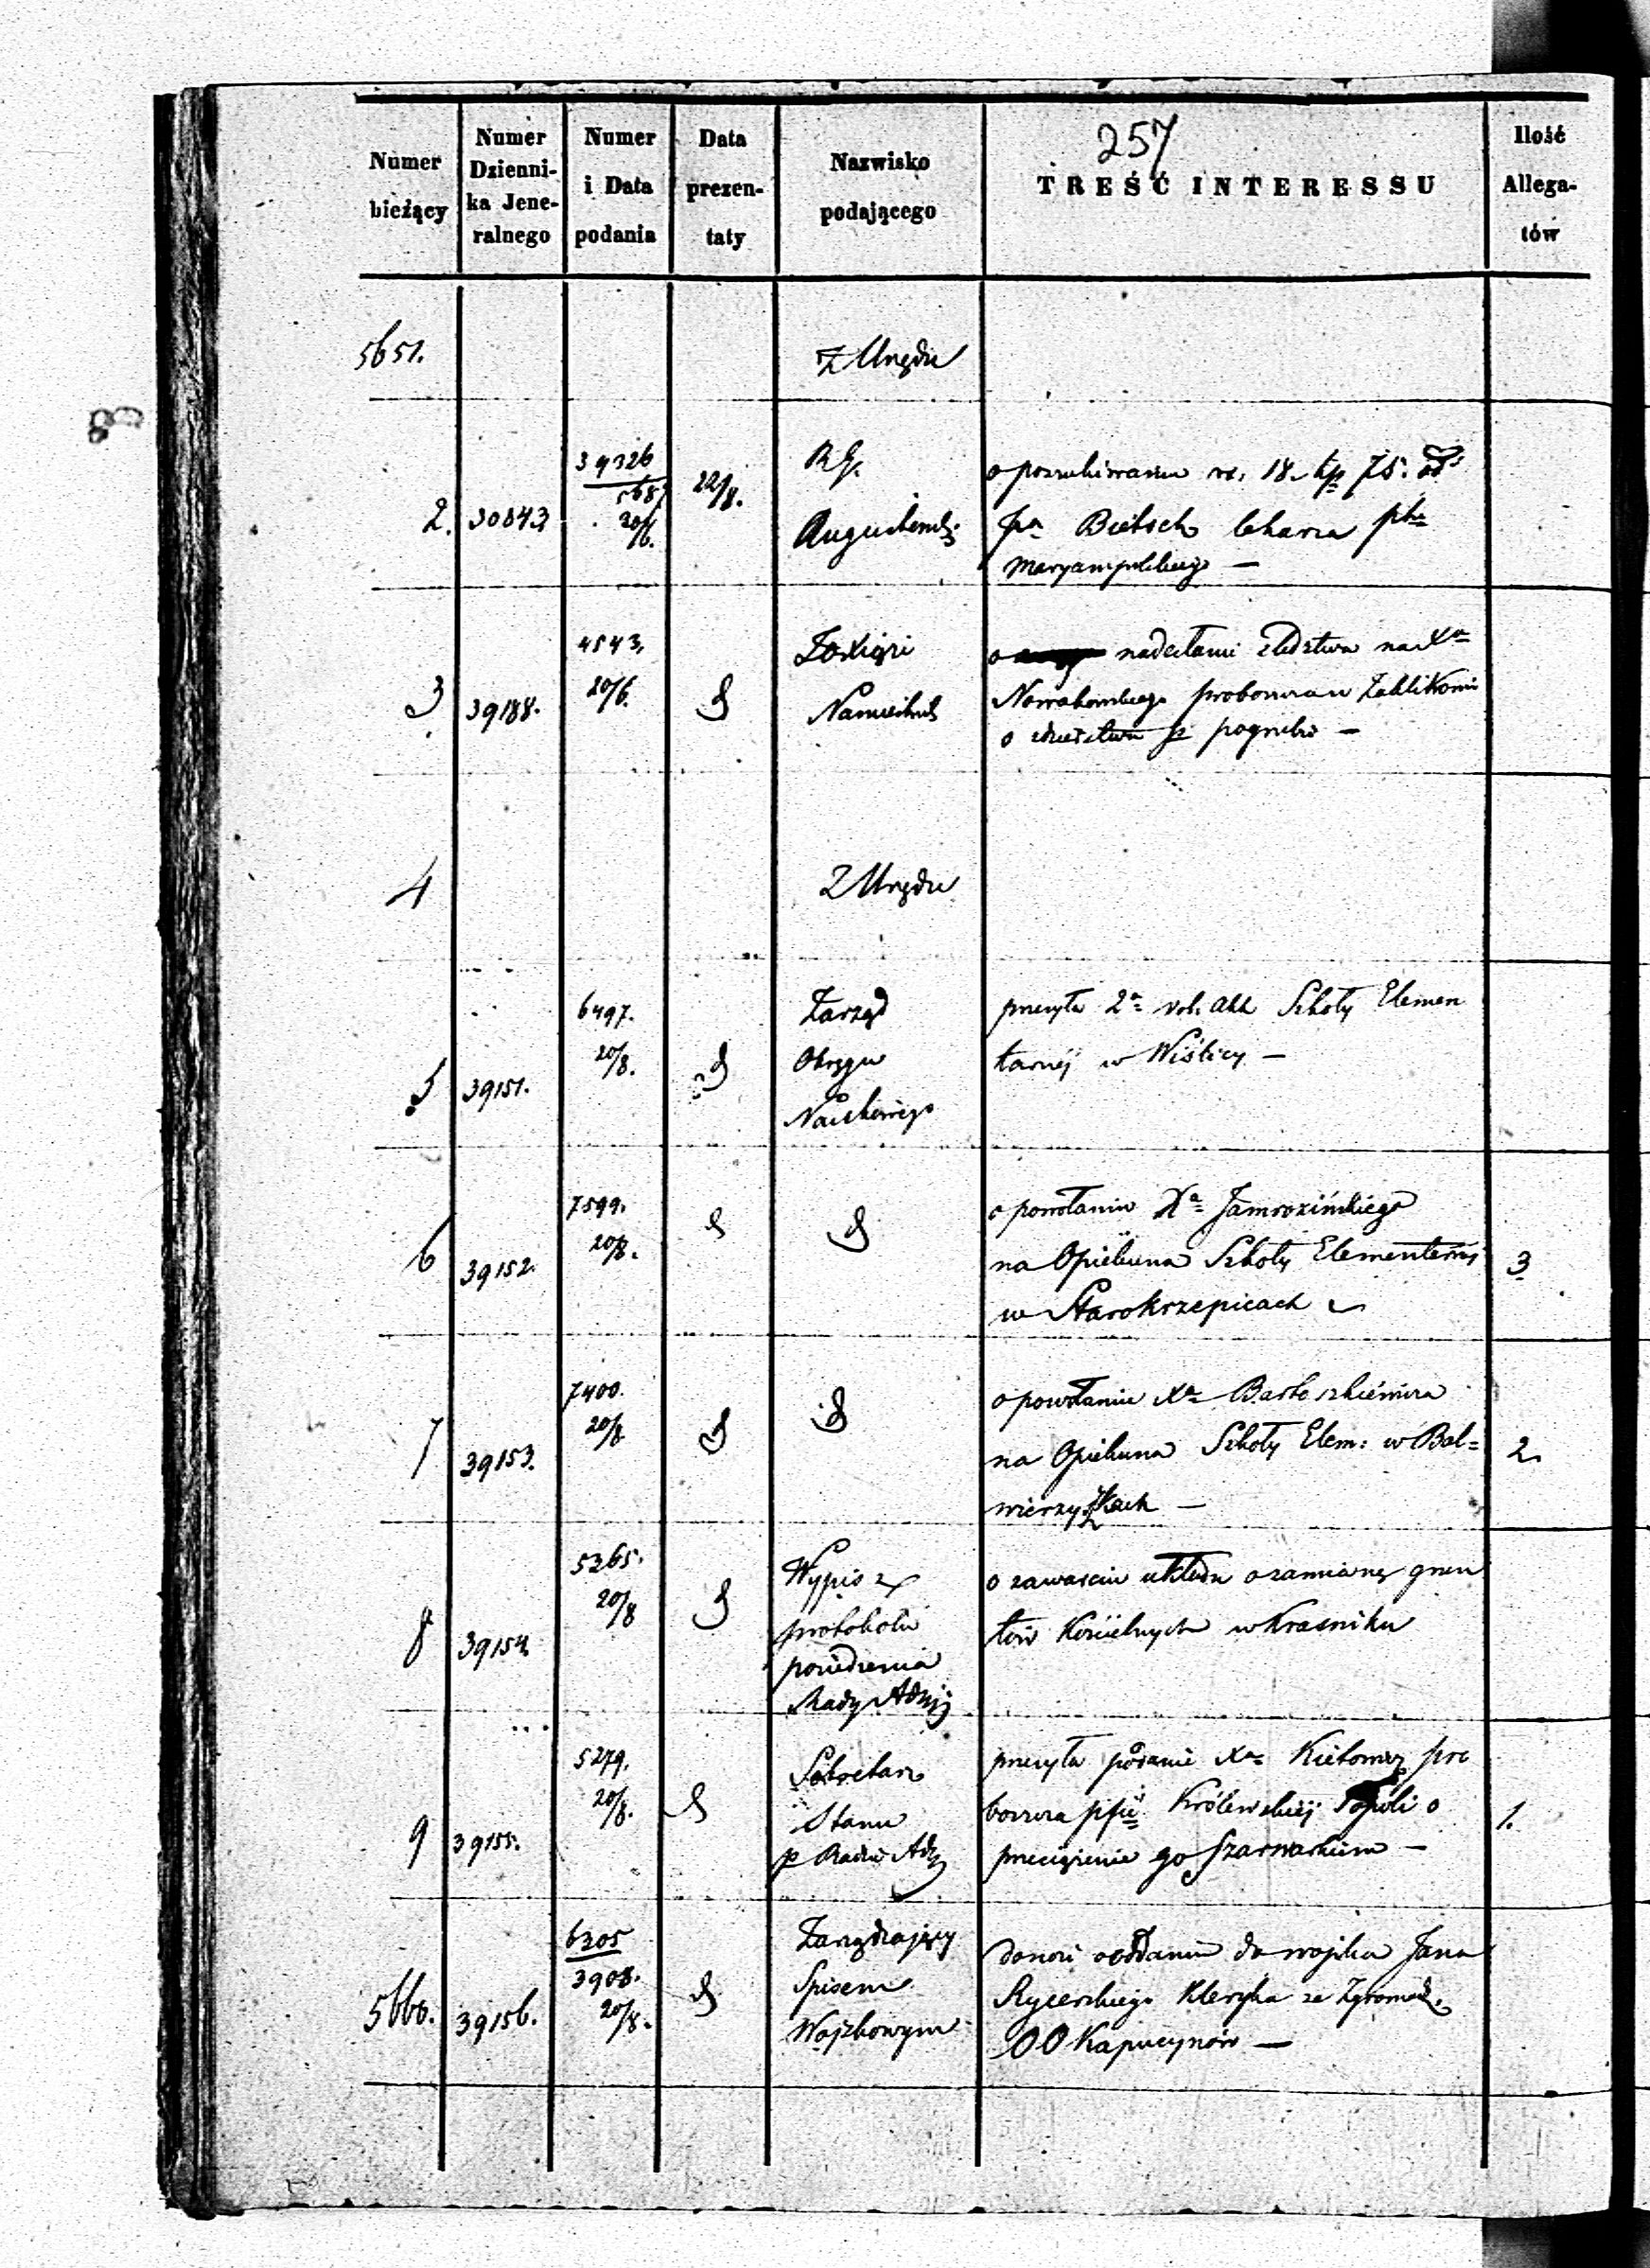 257
Numer bieżący
Numer Dzienni-ka Jene-ralnego
Numer i Data podania
Data prezen-taty
Nazwisko podającego
TREŚĆ INTERESSU
Ilość Allega-tów
5651.
Z Urzędu
2. 30843
20/6.
22/8.
R. G.
o poszukiwaniu rs. 18. kp 75.
Bietsch lekarza
Maryampolskiego —
3 39188.
4543.
20/6.
Xiążę
Namiestnik
o nadesłanie śledztwa na Xa
Nowakowskiego
o pogrzebów —
4
Z Urzędu
5 39151.
6497.
20/8.
Zarząd
Okręgu
Naukowego
przesyła 2a vol. akt Szkoły Elemen
tarnéj w Wiślicy —
6 39152.
7599.
20/8.
o powołaniu Xa Jamrozińskiego
na Opiekuna Szkoły Elementarnéj
w Starokrzepicach
3
7 39153.
7400.
20/8
o powołanie Xa
na Opiekuna Szkoły Elem: w Bal=
wierzyszkach —
2.
8 39154.
5265.
20/8
Wypis z
protokołu
posiedzenia
Rady Admij
o zawarciu układu o zamianę grun
tów Kościelnych w Kraśniku
9 39155.
5279.
20/8.
Sekretarz
Stanu
p Radzie Ad
przesyła podanie Xa pro
boszcza Królewskiéj o
pociągnienie go Szarwarkiem —
1.
5660. 39156.
6205
3908.
20/8.
Zarządzający
Spisem
Wojskowym
donosi o oddaniu do wojska Jana
Rycerskiego Kleryka ze Zgromadz.
OO Kapucynów —